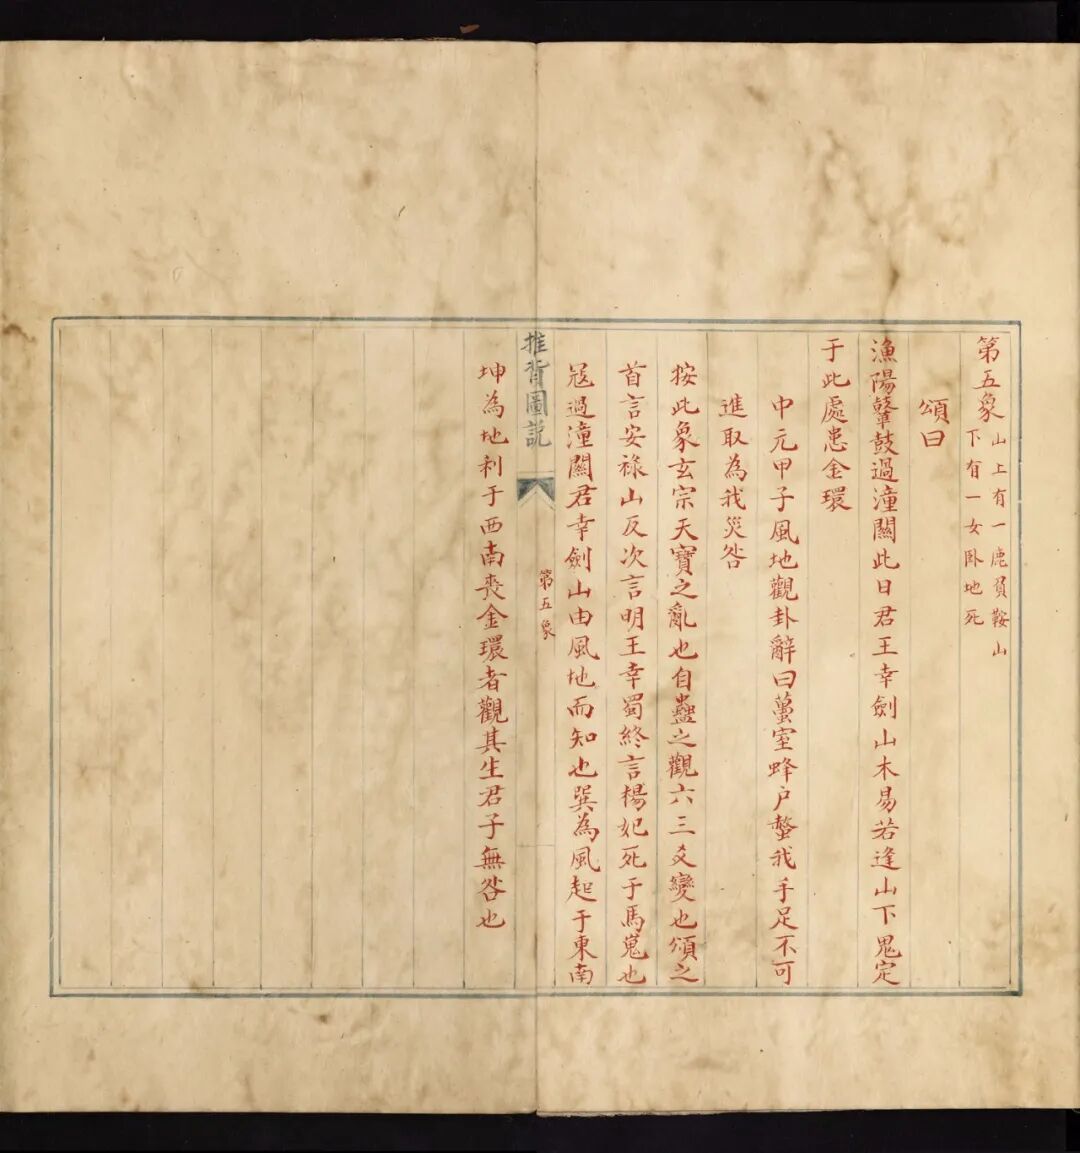 第五象
山上有一鹿負鞍山
下有一女卧地死
頌曰
漁陽鼙鼓過潼關此日君王幸劍山木易若逢山下鬼定
于此處患金環
中元甲子風地觀卦辭曰蠆室蜂户螫我手足不可
進取為我災咎
按此象玄宗天寶之亂也自蠱之觀六三爻變也頌之
首言安祿山反次言明王幸蜀終言楊妃死于馬嵬也
寇過潼關君幸劍山由風地而知也巽為風起于東南
推背圖説
第五象
坤為地利于西南喪金環者觀其生君子無咎也